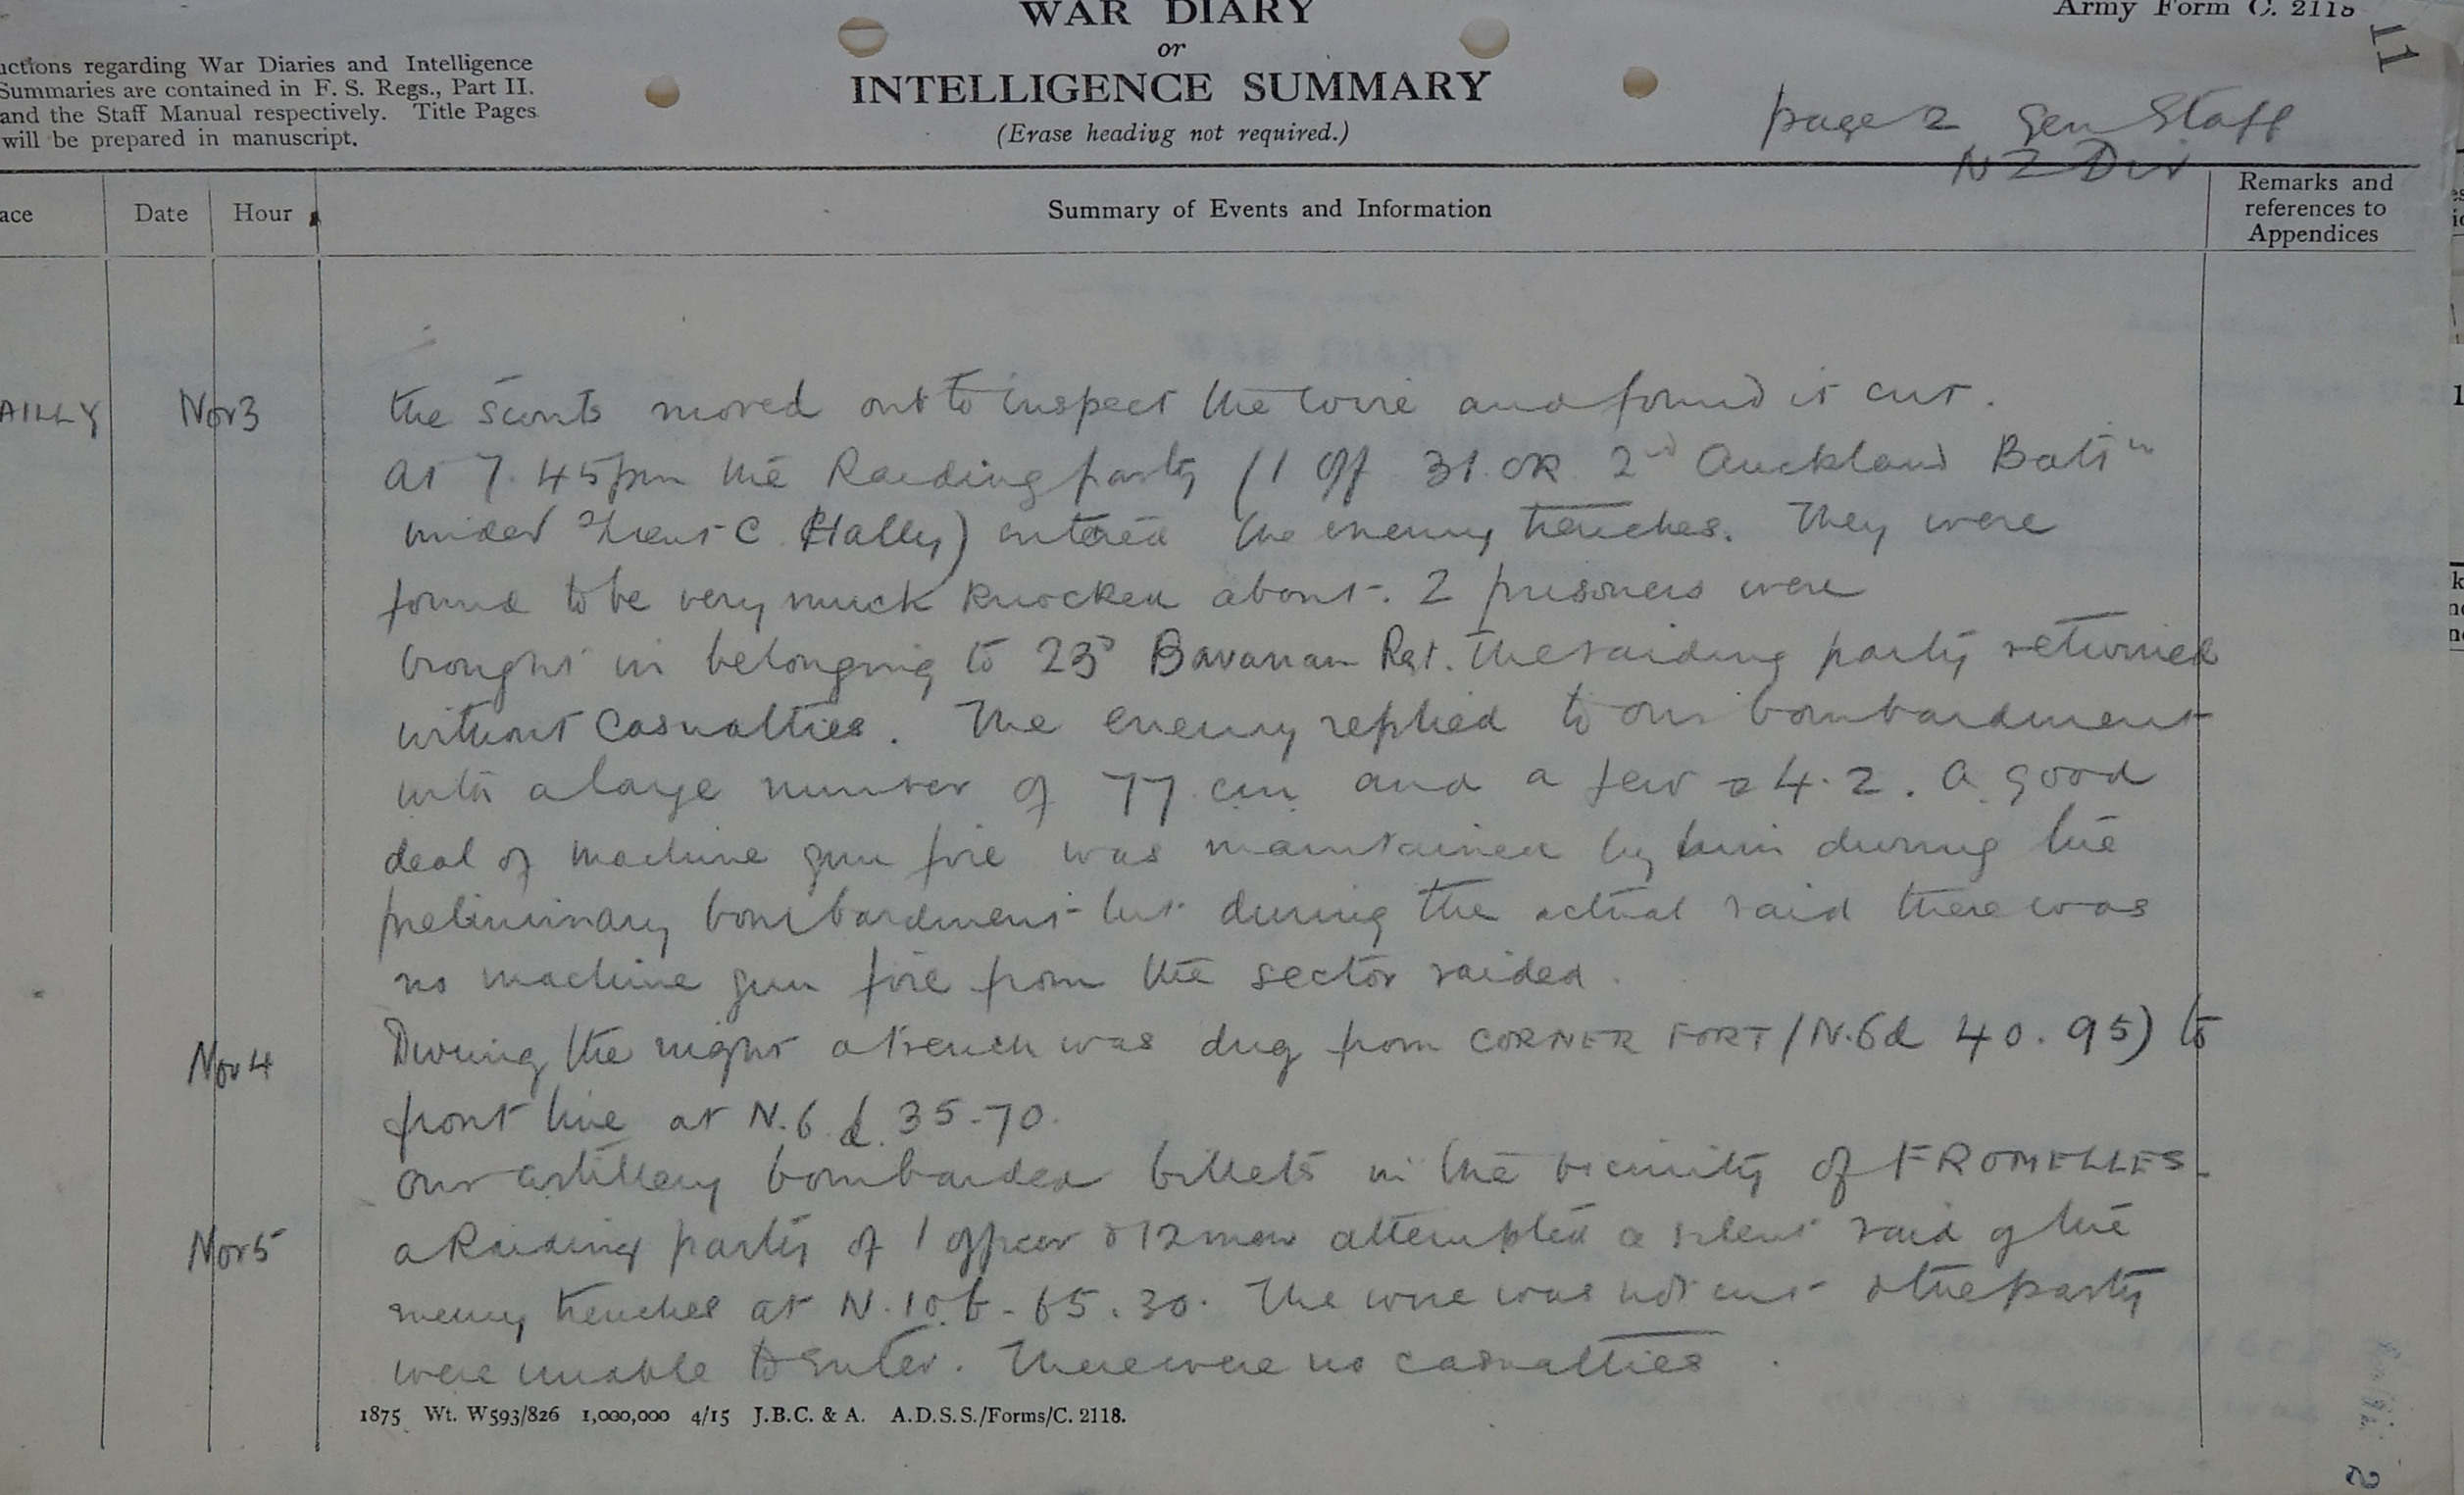 WAR DIARY
or
INTELLIGENCE SUMMARY
(Erase heading not required.)
Army Form C. 2118
11
uctions regarding War Diaries and Intelligence
Summaries are contained in F. S. Regs., Part II.
and the Staff Manual respectively. Title Pages
will be prepared in manuscript.
page 2 Gen Staff
N Z Div
ace
Date
Hour
Summary of Events and Information
Remarks and
references to
Appendices
AILLY Nov 3 the scouts moved out to inspect the wire and found it cut.
At 7.45pm the Raiding party (1 Off 31 OR 2nd Auckland Battn
under Lieut C Hally) entered the enemy trenches. They were
found to be very much knocked about. 2 prisoners were
brought in belonging to 23d Bavarian Rgt. The raiding party returned
without casualties. The enemy replied to our bombardment
with a large number of 77 cm and a few 4.2. A good
deal of machine gun fire was maintained by him during the
preliminary bombardment but during the actual raid there was
no machine gun fire from the sector raided.
Nov 4 During the night a trench was dug from CORNER FORT (N.6d 40.95) to
front line at N.6.d.35-70.
Our artillery bombarded billets in the vicinity of FROMELLES.
Nov 5 A Raiding party of 1 officer & 12 men attempted a silent raid of the
enemy trenches at N.10.b-65.30. The wire was not cut & the party
were unable to enter. There were no casualties.
1875 Wt. W593/826 1,000,000 4/15 J.B.C. & A. A.D.S.S./Forms/C. 2118.
2